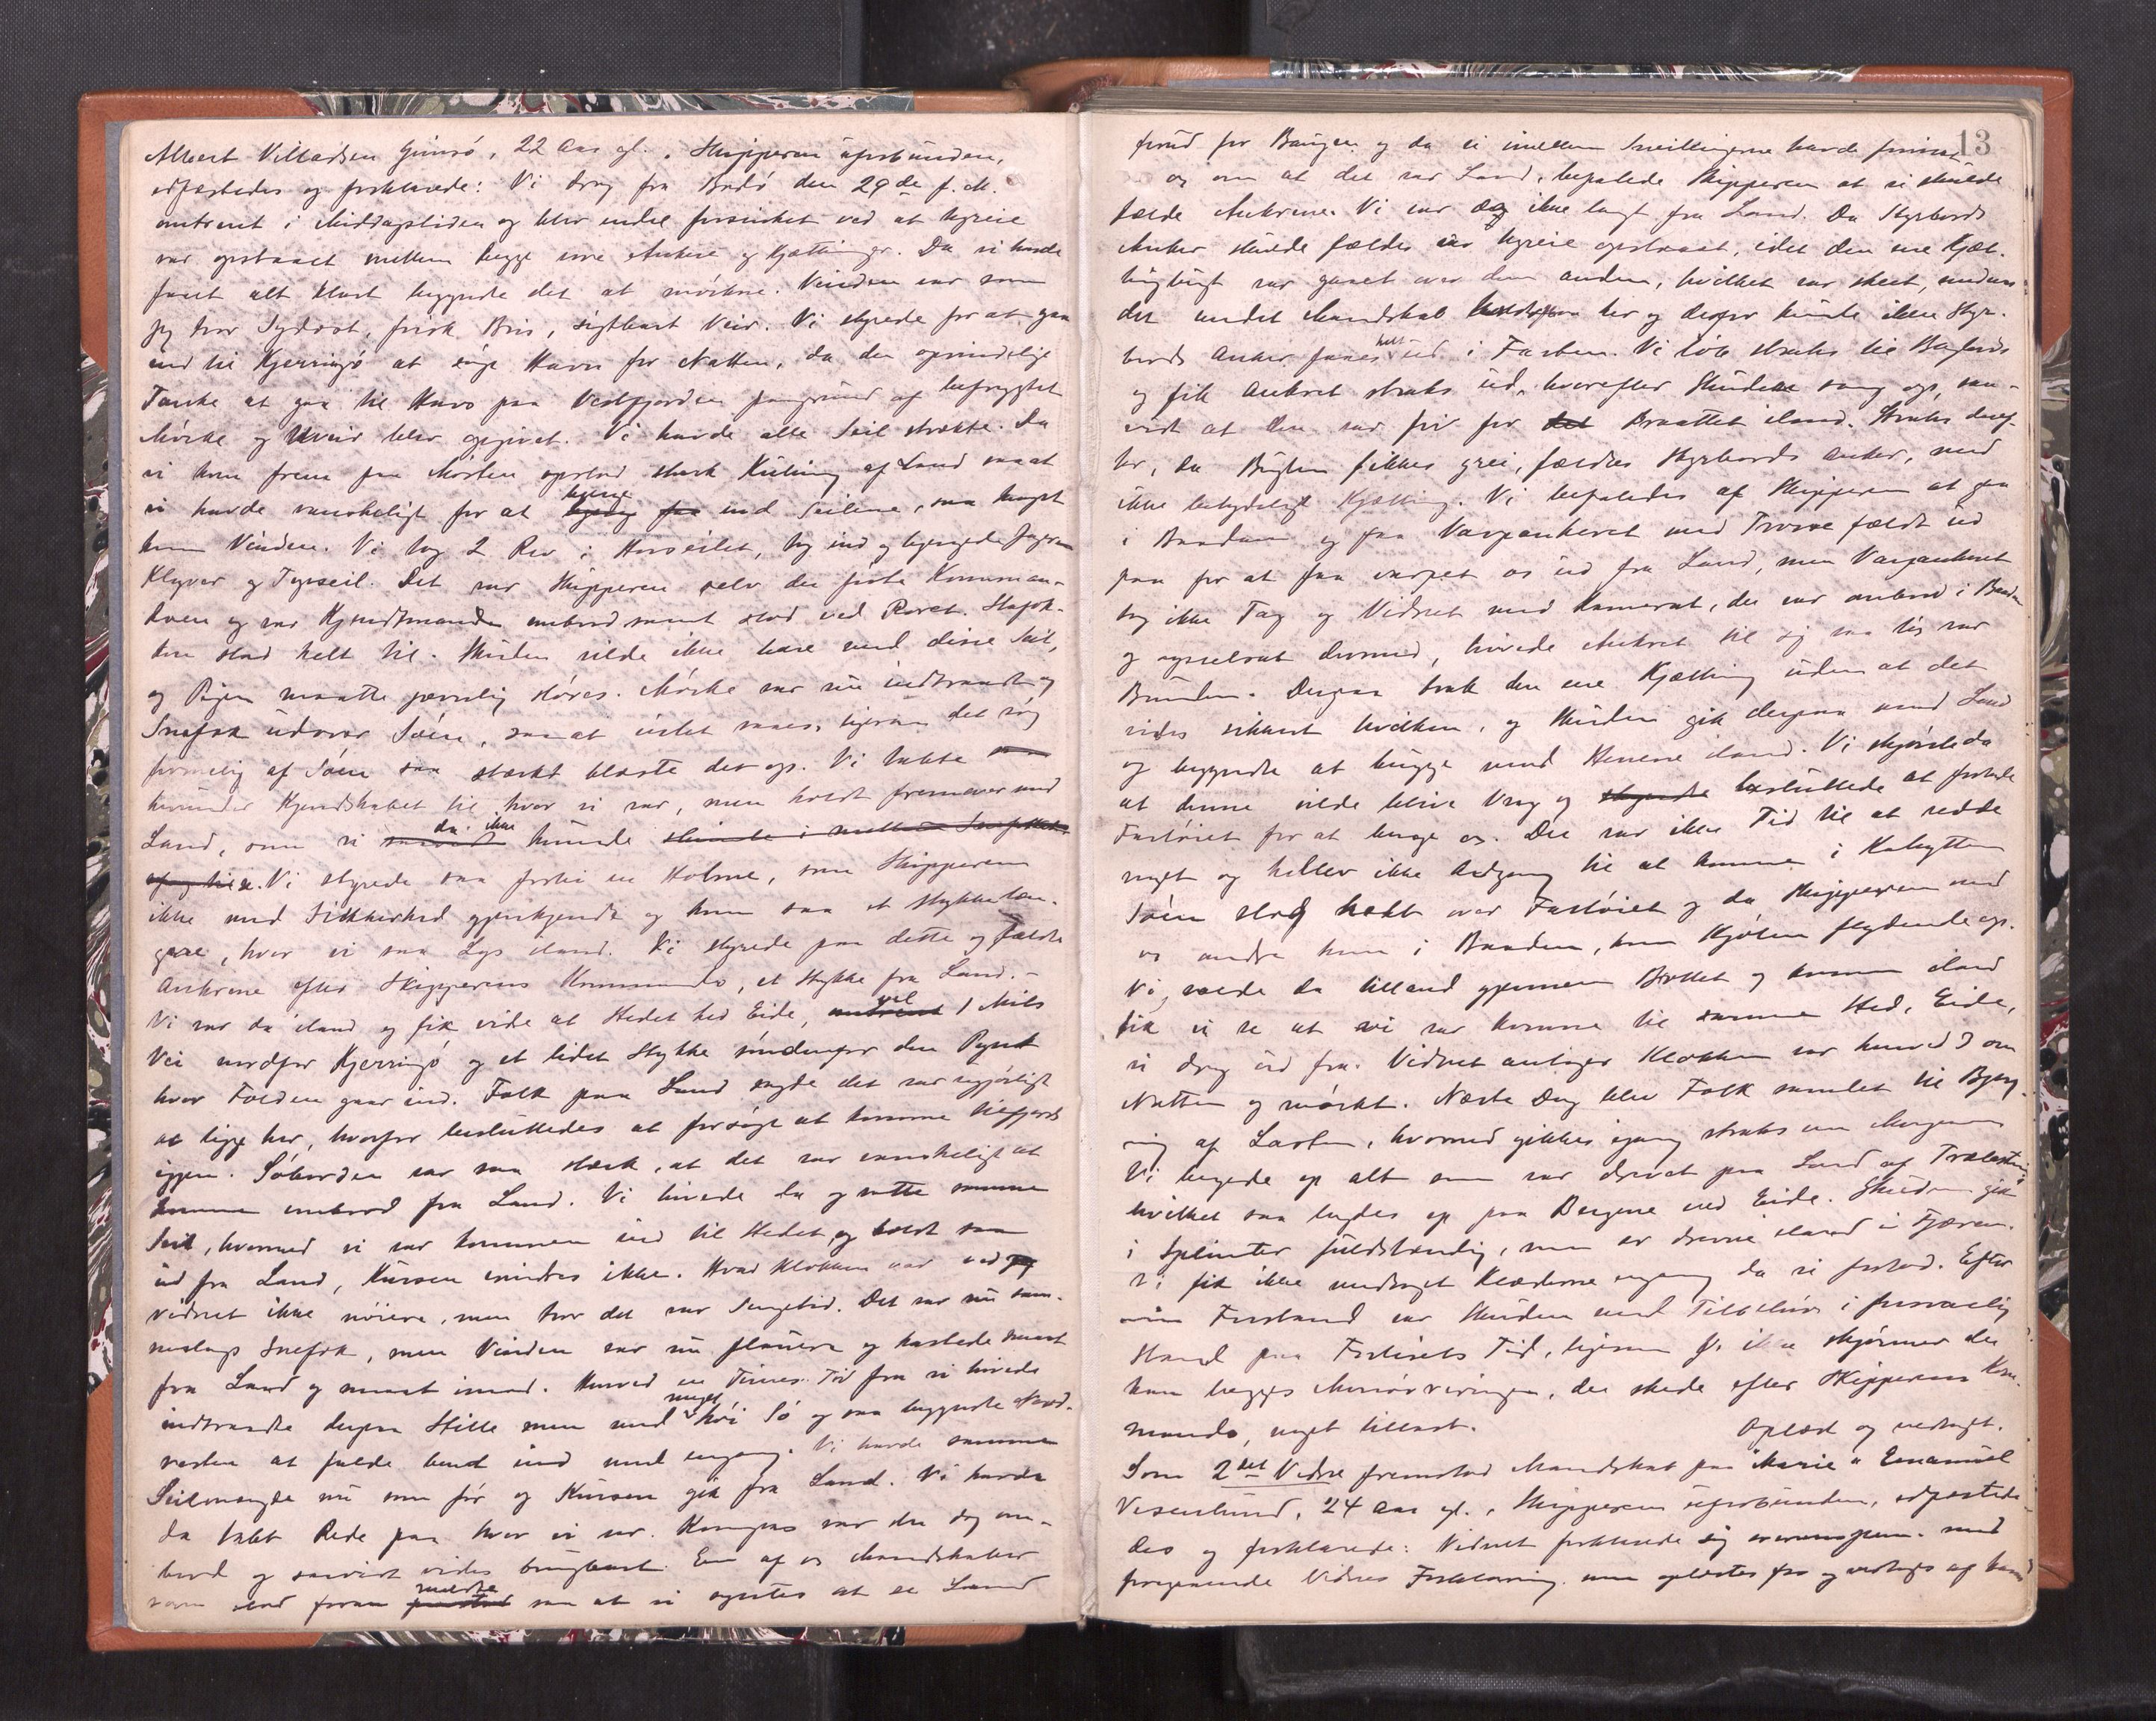 Albert Villadsen Gimsö, 22 Aar gl., Skipperen uforbunden,
edfæstedes og forklarede: Vi drog fra Bodö den 29de f. M.
omtrent i Middagstiden og blev endel forsinket ved at ugreie
var opstaaet mellem begge vore Ankere og Kjættinger. Da vi havde
faaet alt klart begyndte det at mörkne. Vinden var som
jeg tror Sydost, frisk Bris, sigtbart Veir. Vi styrede for at gaa
ind til Kjerringö at söge Havn for Natten, da den oprindelige
Tanke at gaa til Havs paa Vestfjorden paagrund af befrygtet
Mörke og Uveir blev opgivet. Vi havde alle Seil strakte. Da
vi kom frem paa Mörten opstod stærk Kuling af Land saa at
vi havde vanskeligt for at bjerge ind Seilene, saa knapt
kom Vinden. Vi tog 2 Rev i Storseilet, tog ind og bjergede Jageren
Klyver og Topseil. Det var Skipperen selv der förte Komman-
doen og var Kjendtmanden ombord samt stod ved Roret. Stagfok-
ken stod helt til. Skuden vilde ikke bære med disse Seil,
og Pigen maatte jævnlig störes. Mörke var nu indtraadt og
Snefok udover Söen, saa at intet saaes, ligesom det rög
formelig af Söen saa stærkt blæste det op. Vi tabte
herunder Kjendskabet til hvor vi var, men holdt fremover med
Land, som vi da ikke kunde
Vi styrede saa forbi en Holme, som Skipperen
ikke med Sikkerhed gjenkjendte og kom saa et Stykke læn-
gere, hvor vi saa Lys iland. Vi styrede paa dette og fældte
Ankrene efter Skipperens Kommando, et Stykke fra Land. –
Vi var da iland og fik vide at Stedet hed Eide, vel 1 Mils
Vei nordfor Kjerringö og et lidet Stykke söndenfor den Pynt
hvor Folden gaar ind. Folk paa Land sagde det var ugjörligt
at ligge her, hvorfor besluttedes at forsöge at komme tilfjords
igjen. Söbroden var saa stærk, at det var vanskeligt at
komme ombord fra Land. Vi hivede da og satte samme
Seil, hvormed vi var kommen ind til Stedet og holdt saa
ud fra Land, Kursen mindes ikke. Hvad Klokken var ved
Vidnet ikke nöiere, men tror det var Sengetid. Det var nu sam-
meslags Snefok, men Vinden var nu flauere og kastede snart
fra Land og snart imod. Henved en Times Tid fra vi hivede
indtraadte derpaa Stille men med meget höi Sö og saa begyndte Nord-
vesten at falde bent ind med engang. Vi havde samme
Seilmængde nu som för og Kursen gik fra Land. Vi havde
da tabt Rede paa hvor vi var. Kompas var der dog om-
bord og saavidt vides brugbart. En af os Mandskaber
som stod foran meldte om at vi syntes at se Land
13
forud for Baugen og da vi imellem Snellingerne havde forvisset
os om at det var Land, befalede Skipperen at vi skulde
fælde Ankrene. Vi var dog ikke langt fra Land. Da Styrbords
Anker skulde fældes var ugreie opstaaet, idet den ene Kjæt-
tingbugt var gaaet over den anden, hvilket var skeet, medens
det andet Mandskab her og derfor kunde ikke Styr-
bords Anker faaes helt ud i Farten. Vi löb straks til Bagbords
og fik Ankret straks ud, hvorefter Skuden svang op, saa-
vidt at den var fri for Braattet iland. Straks deref-
ter, da Bugten fikkes grei, fældtes Styrbords Anker, med
ikke betydeligt Kjætting. Vi befaledes af Skipperen at gaa
i Baaden og faa Varpankeret med Trosse fældt ud
paa for at faa varpet os ud fra Land, men Varpankeret
tog ikke Tag og Vidnet med Kamerat, der var ombord i Baaden
og sysselsat dermed, hivede Ankret til sig saa lös var
Bunden. Derpaa brak den ene Kjætting uden at det
vides sikkert hvilken, og Skuden gik derpaa mod Land
og begyndte at hugge med Stevnen iland. Vi skjönte da
at denne vilde blive Vrag og besluttede at forlade
Fartöiet for at berge os. Der var ikke Tid til at redde
noget og heller ikke Adgang til at komme i Kahytten
Söen stod hækt over Fartöiet og da Skipperen med
os andre kom i Baaden, kom Kjölen flydende op.
Vi roede da tilland gjennem Brottet og kommen iland
fik vi se at vi var komne til samme Sted, Eide,
vi drog ud fra. Vidnet antager Klokken var henved 3 om
Natten og mörkt. Næste Dag blev Folk samlet til Bjerg-
ning af Lasten, hvormed gikkes igang straks om Morgenen
Vi bergede op alt som var drevet paa Land af Trælasten
hvilket saa lagdes op paa Bergene ved Eide. Skuden gik
i Splinter fuldstændig, men er drevne iland i Fjæren.
Vi fik ikke medtaget Klæderne engang da vi forlod. Efter
min Forstand var Skuden med Tilbehör i forsvarlig
Stand paa Forlisets Tid, ligesom jeg ikke skjönner der
kan lægges Manövreringen, der skede efter Skipperens Kom-
mando, noget tillast. Oplæst og vedtaget.
Som 2det Vidne fremstod Mandskab paa "Marie" Emanuel
Vesterlund, 24 Aar gl., Skipperen uforbunden, edfæstede-
des og forklarede: Vidnet forklarede sig overensstem. med
foregaaende Vidnes Forklaring som oplæstes for og vedtoges af ham